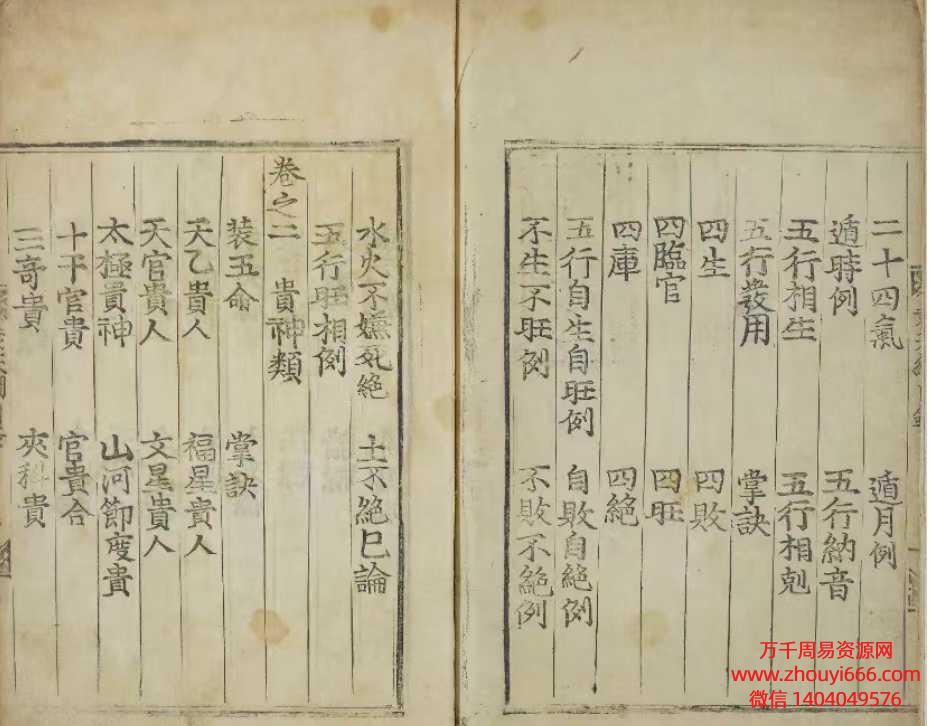 二十四氣　遁月例
遁時例　五行納音
五行相生　五行相剋
五行發用　掌訣
四生　四敗
四臨官　四旺
四庫　四絕
五行自生自旺例　自敗自絕例
不生不旺例　不敗不絕例
水火不嫌死絕　土不絕巳論
五行旺相例
卷之二　貴神類
裝五命　掌訣
天乙貴人　福星貴人
天官貴人　文星貴人
太極貴神　山河節度貴
十干官貴　官貴合
三奇貴　夾科貴
万千周易资源网
www.zhouyi666.com
微信 1404049576